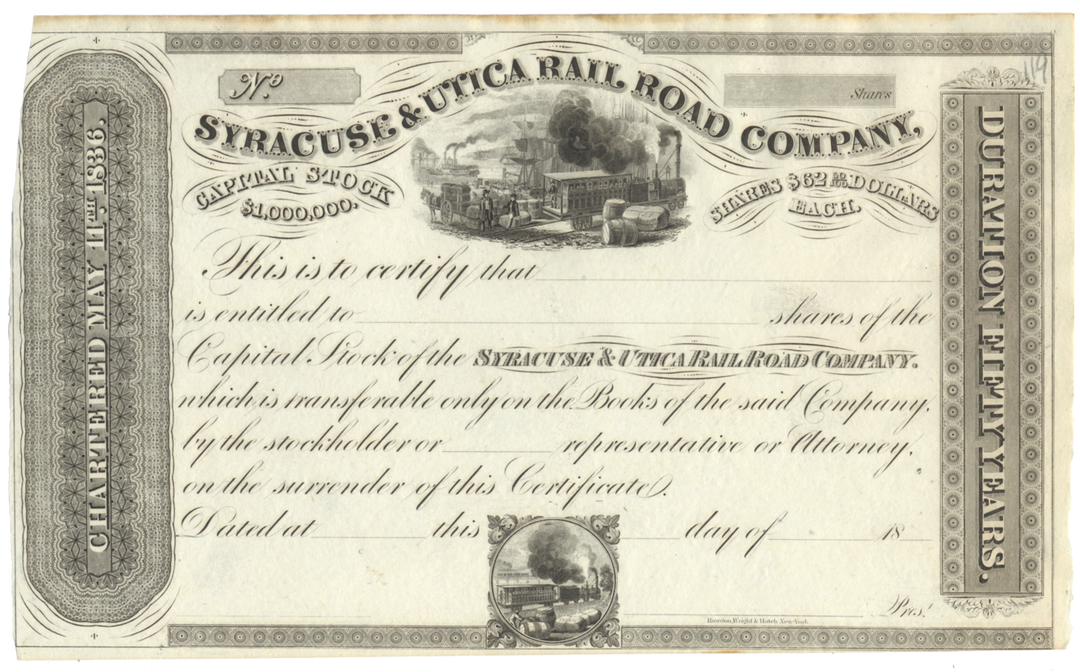 119
Nº
Shares
SYRACUSE & UTICA RAIL ROAD COMPANY,
CAPITAL STOCK
$1,000,000.
SHARES $62 50/100 DOLLARS
EACH.
CHARTERED MAY 11TH 1836.
DURATION FIFTY YEARS.
This is to certify that
is entitled to shares of the
Capital Stock of the SYRACUSE & UTICA RAIL ROAD COMPANY.
which is transferable only on the Books of the said Company,
by the stockholder or representative or Attorney,
on the surrender of this Certificate.
Dated at this day of 18
Prest
Rawdon, Wright & Hatch, New-York.